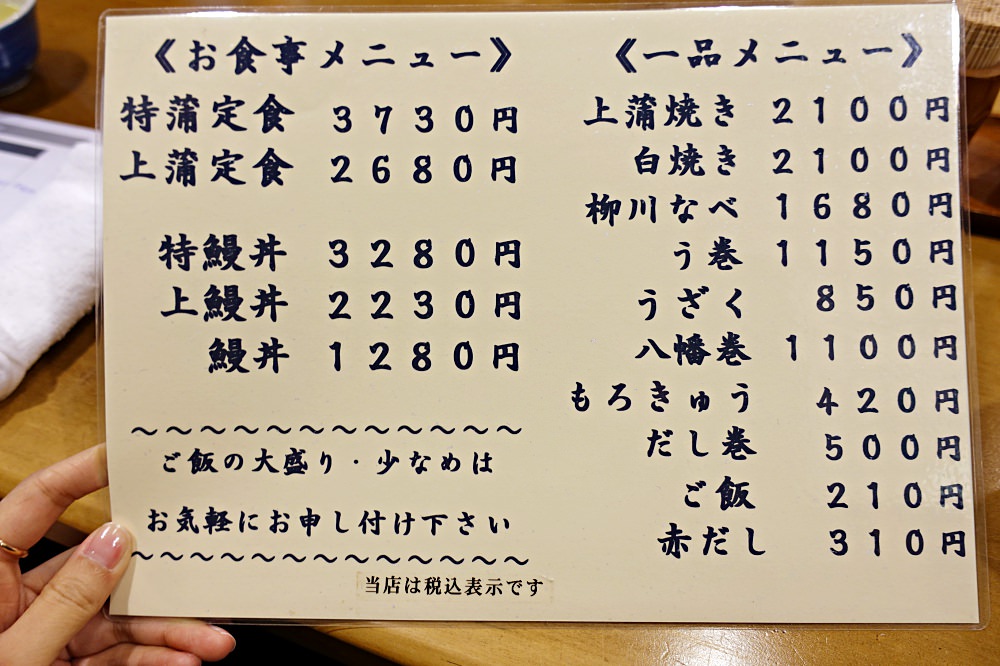 《お食事メニュー》
特蒲定食 3730円
上蒲定食 2680円
特鰻丼 3280円
上鰻丼 2230円
鰻丼 1280円
〜〜〜〜〜〜〜〜〜〜〜〜〜
ご飯の大盛り・少なめは
お気軽にお申し付け下さい
〜〜〜〜〜〜〜〜〜〜〜〜〜
当店は税込表示です
《一品メニュー》
上蒲焼き 2100円
白焼き 2100円
柳川なべ 1680円
う巻 1150円
うざく 850円
八幡巻 1100円
もろきゅう 420円
だし巻 500円
ご飯 210円
赤だし 310円